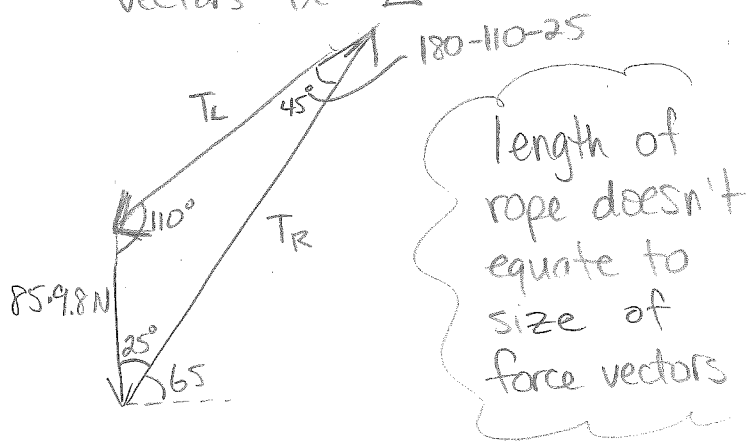 180-110-25
TL
45°
110°
TR
85·9.8N
25°
65
length of
rope doesn't
equate to
size of
force vectors